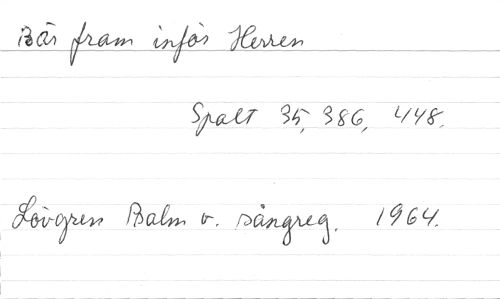 Bär fram inför Herren
Spalt 35, 386, 448.
Lövgren Psalm o. sångreg. 1964.